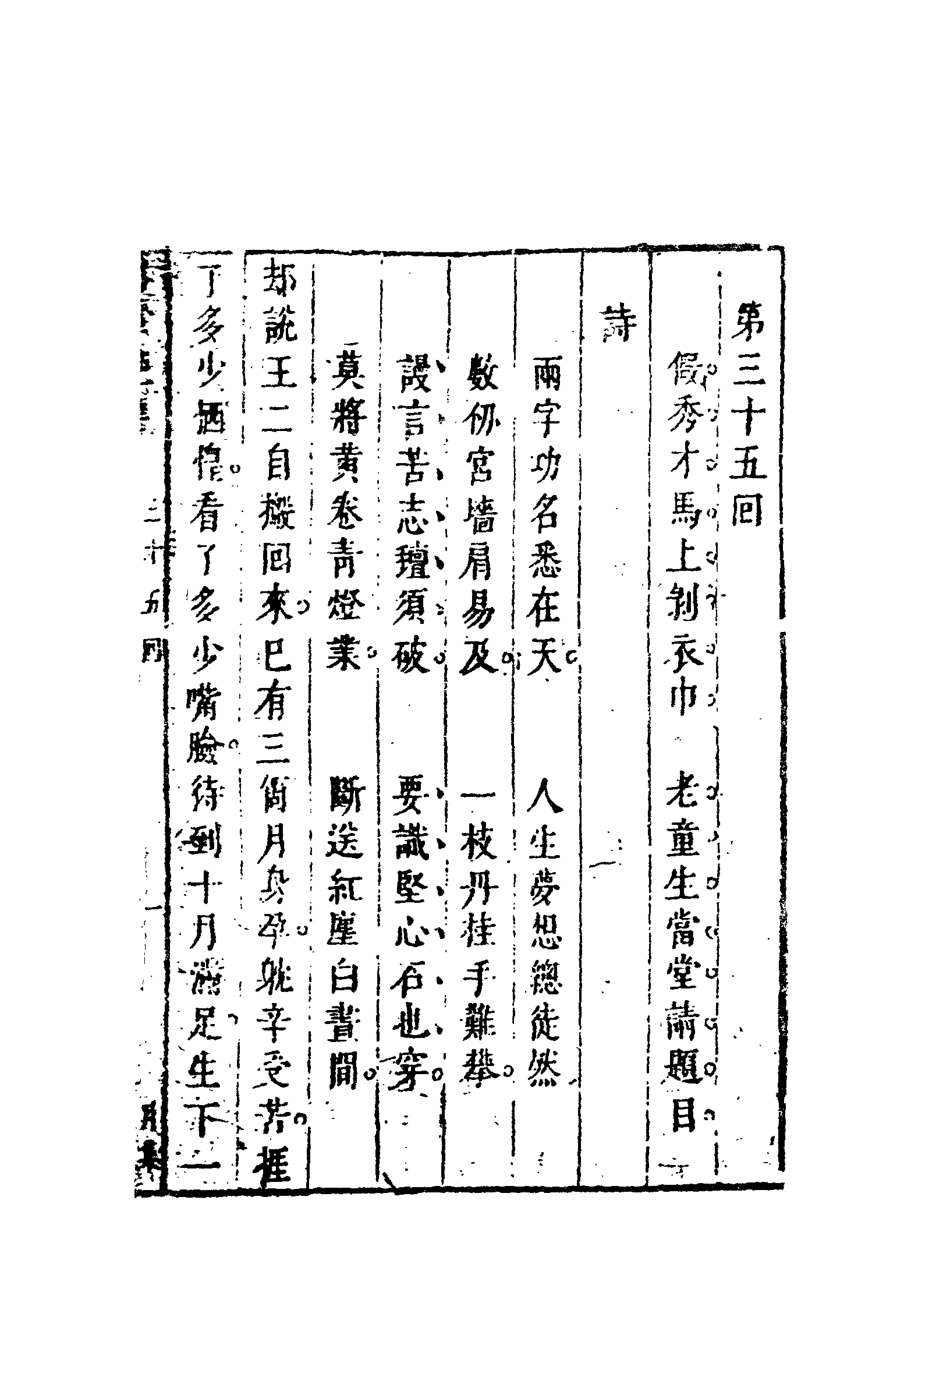 第三十五回
假秀才馬上剝衣巾　老童生當堂請題目
詩
兩字功名悉在天　人生夢想總徒然
數仞宮墻肩易及　一枝丹桂手難攀
謾言苦志氊須破　要識堅心石也穿
莫將黄卷青燈業　斷送紅塵白晝間
却說王二自搬回來已有三個月身孕躭辛受苦捱
了多少恓惶看了多少嘴臉待到十月滿足生下一
三十五回
月集